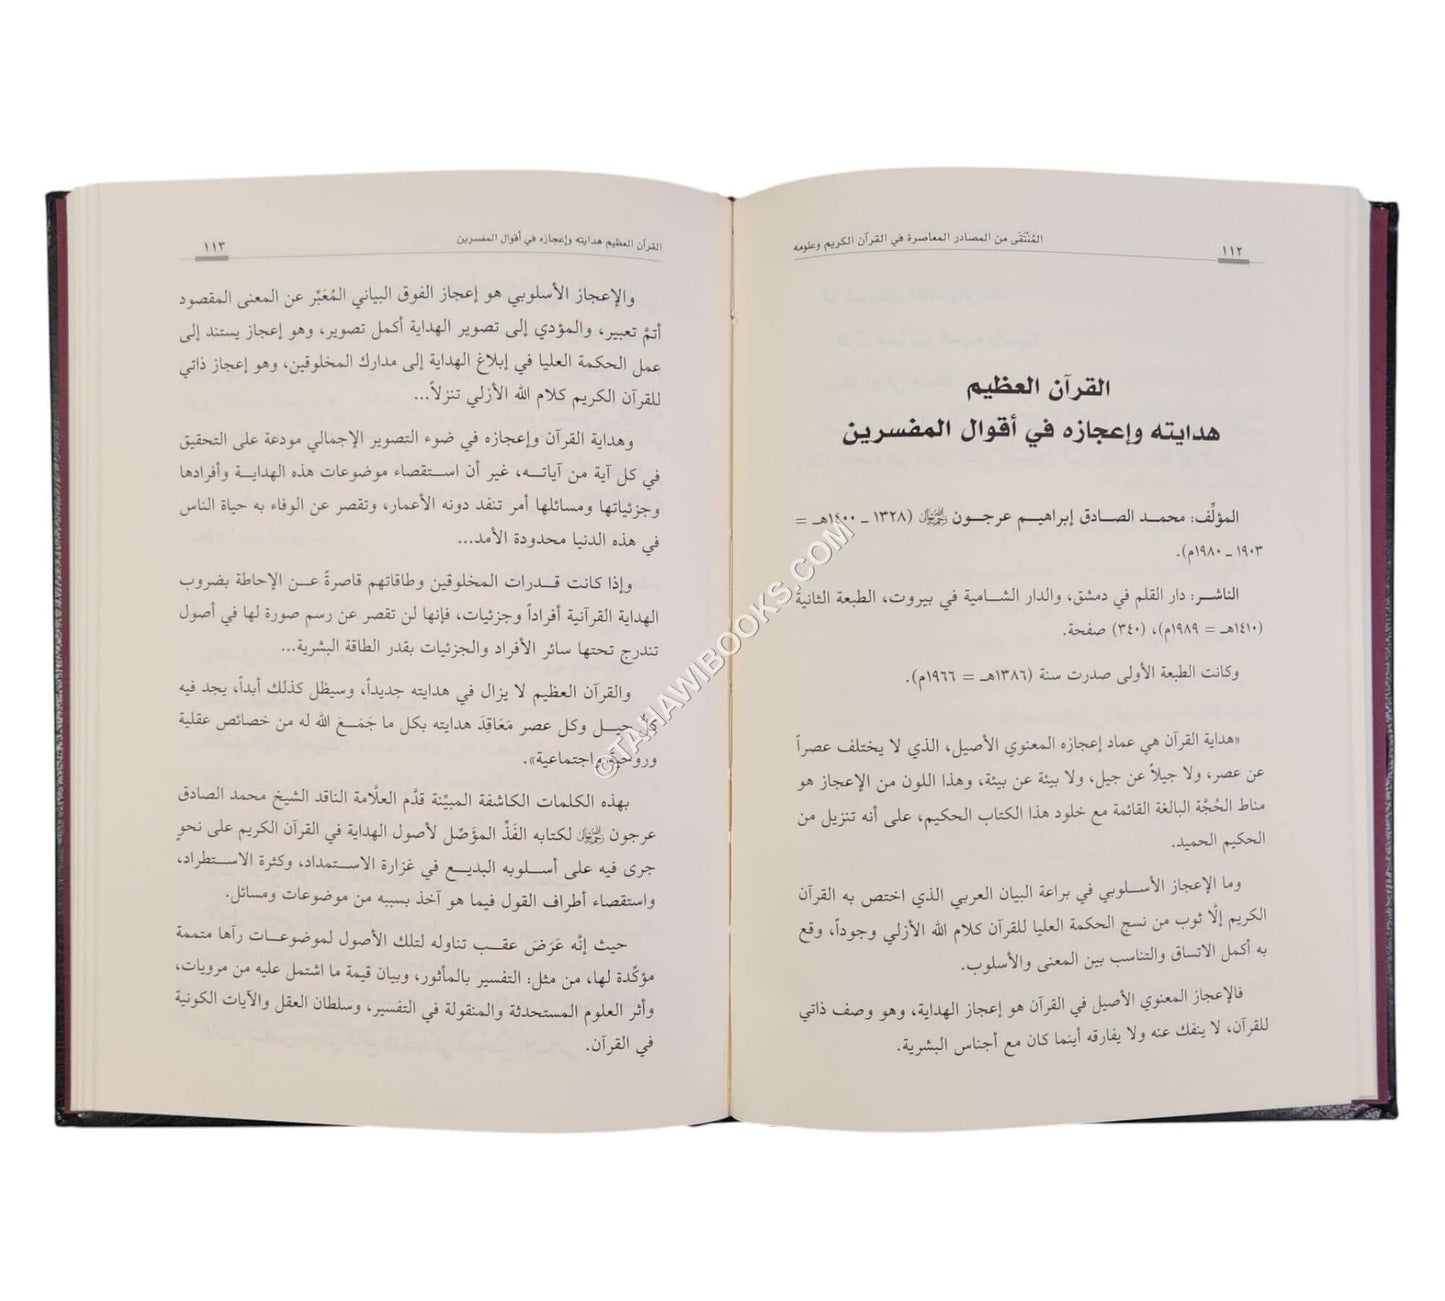 ١١٢
المُنْتَقَى من المصادر المعاصرة في القرآن الكريم وعلومه
القرآن العظيم
هدايته وإعجازه في أقوال المفسرين
المؤلِّف: محمد الصادق إبراهيم عرجون رحمه الله (١٣٢٨ ـ ١٤٠٠هـ =
١٩٠٣ ـ ١٩٨٠م).
الناشر: دار القلم في دمشق، والدار الشامية في بيروت، الطبعة الثانية
(١٤١٠هـ = ١٩٨٩م)، (٣٤٠) صفحة.
وكانت الطبعة الأولى صدرت سنة (١٣٨٦هـ = ١٩٦٦م).
«هداية القرآن هي عماد إعجازه المعنوي الأصيل، الذي لا يختلف عصراً
عن عصر، ولا جيلاً عن جيل، ولا بيئة عن بيئة، وهذا اللون من الإعجاز هو
مناط الحُجَّة البالغة القائمة مع خلود هذا الكتاب الحكيم، على أنه تنزيل من
الحكيم الحميد.
وما الإعجاز الأسلوبي في براعة البيان العربي الذي اختص به القرآن
الكريم إلَّا ثوب من نسج الحكمة العليا للقرآن كلام الله الأزلي وجوداً، وقع
به أكمل الاتساق والتناسب بين المعنى والأسلوب.
فالإعجاز المعنوي الأصيل في القرآن هو إعجاز الهداية، وهو وصف ذاتي
للقرآن، لا ينفك عنه ولا يفارقه أينما كان مع أجناس البشرية.
القرآن العظيم هدايته وإعجازه في أقوال المفسرين
١١٣
والإعجاز الأسلوبي هو إعجاز الفوق البياني المُعَبِّر عن المعنى المقصود
أتمَّ تعبير، والمؤدي إلى تصوير الهداية أكمل تصوير، وهو إعجاز يستند إلى
عمل الحكمة العليا في إبلاغ الهداية إلى مدارك المخلوقين، وهو إعجاز ذاتي
للقرآن الكريم كلام الله الأزلي تنزلاً...
وهداية القرآن وإعجازه في ضوء التصوير الإجمالي مودعة على التحقيق
في كل آية من آياته، غير أن استقصاء موضوعات هذه الهداية وأفرادها
وجزئياتها ومسائلها أمر تنفد دونه الأعمار، وتقصر عن الوفاء به حياة الناس
في هذه الدنيا محدودة الأمد...
وإذا كانت قدرات المخلوقين وطاقاتهم قاصرةً عن الإحاطة بضروب
الهداية القرآنية أفراداً وجزئيات، فإنها لن تقصر عن رسم صورة لها في أصول
تندرج تحتها سائر الأفراد والجزئيات بقدر الطاقة البشرية...
والقرآن العظيم لا يزال في هدايته جديداً، وسيظل كذلك أبداً، يجد فيه
كلُّ جيل وكل عصر مَعَاقِدَ هدايته بكل ما جَمَعَ الله له من خصائص عقلية
وروحية واجتماعية».
بهذه الكلمات الكاشفة المبيِّنة قدَّم العلَّامة الناقد الشيخ محمد الصادق
عرجون رحمه الله لكتابه الفَذِّ المؤَصِّل لأصول الهداية في القرآن الكريم على نحوٍ
جرى فيه على أسلوبه البديع في غزارة الاستمداد، وكثرة الاستطراد،
واستقصاء أطراف القول فيما هو آخذ بسببه من موضوعات ومسائل.
حيث إنَّه عَرَضَ عقب تناوله لتلك الأصول لموضوعات رآها متممة
مؤكِّدة لها، من مثل: التفسير بالمأثور، وبيان قيمة ما اشتمل عليه من مرويات،
وأثر العلوم المستحدثة والمنقولة في التفسير، وسلطان العقل والآيات الكونية
في القرآن.
©TAHAWIBOOKS.COM